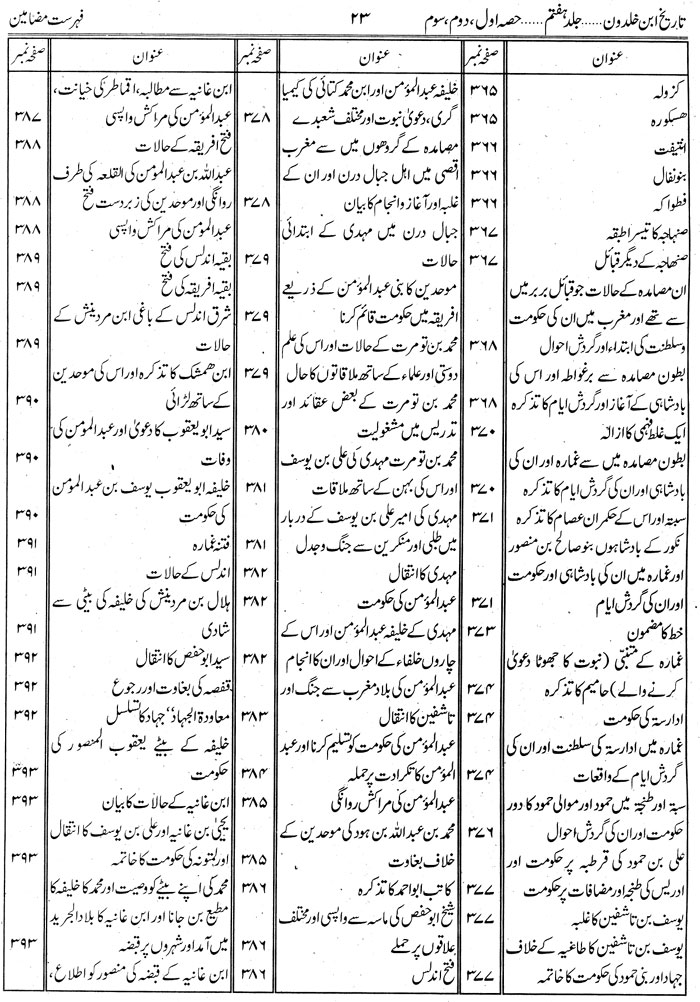 تاریخ ابن خلدون ...... جلد ہفتم ...... حصہ اول، دوم، سوم ۲۳ فہرست مضامین
عنوان صفحہ نمبر
کزولہ ۳۶۵
ھسکورہ ۳۶۵
انتیفت ۳۶۶
بنو نفال ۳۶۶
فطواکہ ۳۶۶
صنہاجہ کا تیسرا طبقہ ۳۶۷
صنھاجہ کے دیگر قبائل ۳۶۷
ان مصامدہ کے حالات جو قبائل بربر میں
سے تھے اور مغرب میں ان کی حکومت
و سلطنت کی ابتداء اور گردش احوال ۳۶۸
بطون مصامدہ سے برغواطہ اور اس کی
بادشاہی کے آغاز اور گردش ایام کا تذکرہ ۳۶۸
ایک غلط فہمی کا ازالہ ۳۷۰
بطون مصامدہ میں سے غمارہ اور ان کی
بادشاہی اور ان کی گردش ایام کا تذکرہ ۳۷۰
سبتہ اور اس کے حکمران عصام کا تذکرہ ۳۷۱
نکور کے بادشاہوں بنو صالح بن منصور
اور غمارہ میں ان کی بادشاہی اور حکومت
اور ان کی گردش ایام ۳۷۱
خط کا مضمون ۳۷۳
غمارہ کے متنبّی (نبوت کا جھوٹا دعویٰ
کرنے والے) حامیم کا تذکرہ ۳۷۴
ادارسہ کی حکومت ۳۷۴
غمارہ میں ادارسہ کی سلطنت اور ان کی
گردش ایام کے واقعات ۳۷۴
سبتہ اور طنجہ میں حمود اور موالی حمود کا دور
حکومت اور ان کی گردش احوال ۳۷۶
علی بن حمود کی قرطبہ پر حکومت اور
ادریس کی طنجہ اور مضافات پر حکومت ۳۷۷
یوسف بن تاشفین کا غلبہ ۳۷۷
یوسف بن تاشفین کا طاغیہ کے خلاف
جہاد اور بنی حمود کی حکومت کا خاتمہ ۳۷۷
عنوان صفحہ نمبر
خلیفہ عبدالمؤمن اور ابن محمد کتائی کی کیمیا
گری، دعویٰ نبوت اور مختلف شعبدے ۳۷۸
مصامدہ کے گروھوں میں سے مغرب
اقصیٰ میں اہل جبال درن اور ان کے
غلبہ اور آغاز و انجام کا بیان ۳۷۸
جبال درن میں مہدی کے ابتدائی
حالات ۳۷۹
موحدین کا بنی عبدالمؤمن کے ذریعے
افریقہ میں حکومت قائم کرنا ۳۷۹
محمد بن تومرت کے حالات اور اس کی علم
دوستی اور علماء کے ساتھ ملاقاتوں کا حال ۳۷۹
محمد بن تومرت کے بعض عقائد اور
تدریس میں مشغولیت ۳۸۰
محمد بن تومرت مہدی کی علی بن یوسف
اور اس کی بہن کے ساتھ ملاقات ۳۸۱
مہدی کی امیر علی بن یوسف کے دربار
میں طلبی اور منکرین سے جنگ و جدل ۳۸۱
مہدی کا انتقال ۳۸۲
عبدالمؤمن کی حکومت ۳۸۲
مہدی کے خلیفہ عبدالمؤمن اور اس کے
چاروں خلفاء کے احوال اور ان کا انجام ۳۸۲
عبدالمؤمن کی بلاد مغرب سے جنگ اور
تاشفین کا انتقال ۳۸۳
عبدالمؤمن کی حکومت کو تسلیم کرنا اور عبد
المؤمن کا تکرادت پر حملہ ۳۸۴
عبدالمؤمن کی مراکش روانگی ۳۸۵
محمد بن عبداللہ بن ہود کی موحدین کے
خلاف بغاوت ۳۸۵
کاتب ابو احمد کا تذکرہ ۳۸۶
شیخ ابو حفص کی ماسہ سے واپسی اور مختلف
علاقوں پر حملے ۳۸۶
فتح اندلس ۳۸۶
عنوان صفحہ نمبر
ابن غانیہ سے مطالبہ، اقماطر کی خیانت،
عبدالمؤمن کی مراکش واپسی ۳۸۷
فتح افریقہ کے حالات ۳۸۸
عبداللہ بن عبدالمؤمن کی القلعہ کی طرف
روانگی اور موحدین کی زبردست فتح ۳۸۸
عبدالمؤمن کی مراکش واپسی ۳۸۸
بقیہ اندلس کی فتح ۳۸۹
بقیہ افریقہ کی فتح ۳۸۹
شرق اندلس کے باغی ابن مردنیش کے
حالات ۳۸۹
ابن ھمشک کا تذکرہ اور اس کی موحدین
کے ساتھ لڑائی ۳۹۰
سید ابو یعقوب کا دعویٰ اور عبدالمؤمن کی
وفات ۳۹۰
خلیفہ ابو یعقوب یوسف بن عبدالمؤمن
کی حکومت ۳۹۰
فتنہ غمارہ ۳۹۱
اندلس کے حالات ۳۹۱
ہلال بن مردنیش کی خلیفہ کی بیٹی سے
شادی ۳۹۱
سید ابو حفص کا انتقال ۳۹۲
قفصہ کی بغاوت اور رجوع ۳۹۲
معاودۃ الجہاد "جہاد کا تسلسل ۳۹۲
خلیفہ کے بیٹے یعقوب المنصور کی
حکومت ۳۹۳
ابن غانیہ کے حالات کا بیان ۳۹۳
یحییٰ بن غانیہ اور علی بن یوسف کا انتقال
اور لمتونہ کی حکومت کا خاتمہ ۳۹۳
محمد کی اپنے بیٹے کو وصیت اور محمد کا خلیفہ کا
مطیع بن جانا اور ابن غانیہ کا بلاد الجرید
میں آمد اور شہروں پر قبضہ ۳۹۳
ابن غانیہ کے قبضہ کی منصور کو اطلاع،